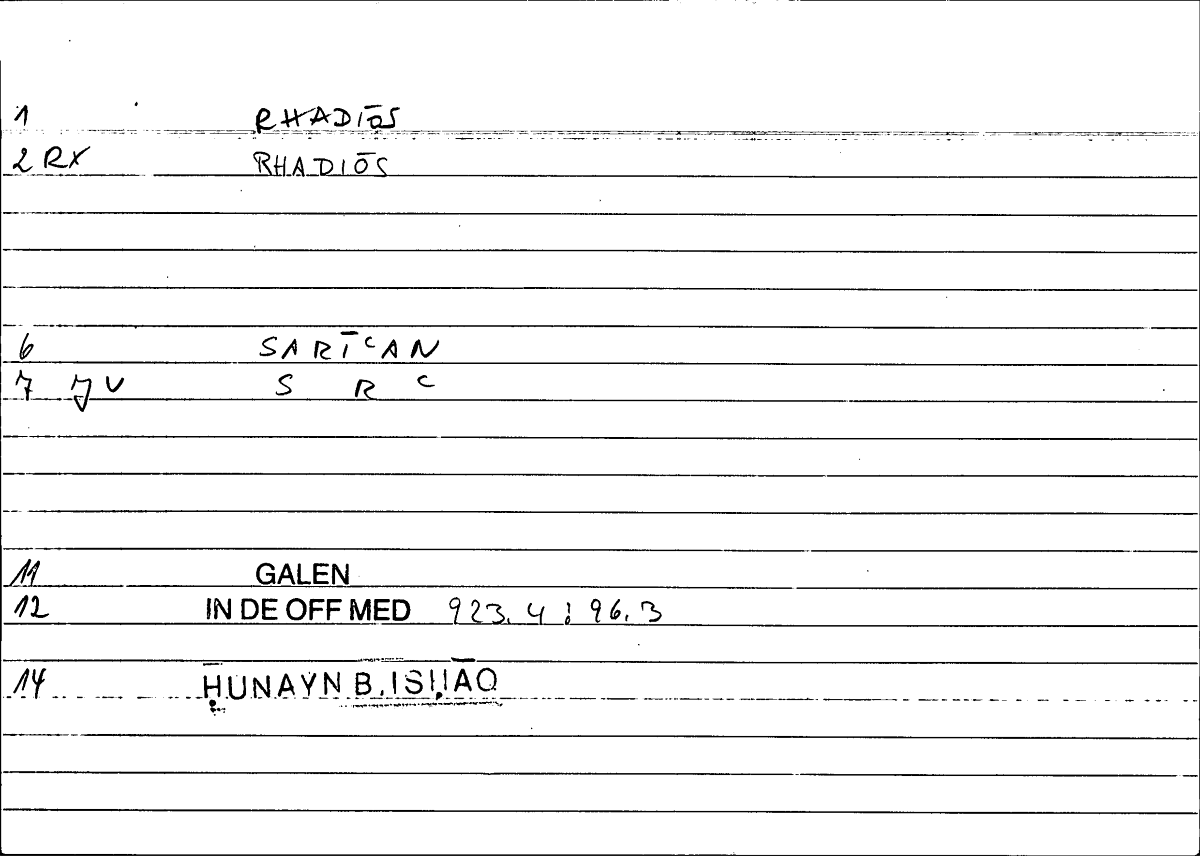 1 RHADIŌS
2 RX RHADIŌS
6 SARĪᶜAN
7 JV S R ᶜ
11 GALEN
12 IN DE OFF MED 923.4 ; 96.3
14 ḤUNAYN B. ISḤĀQ